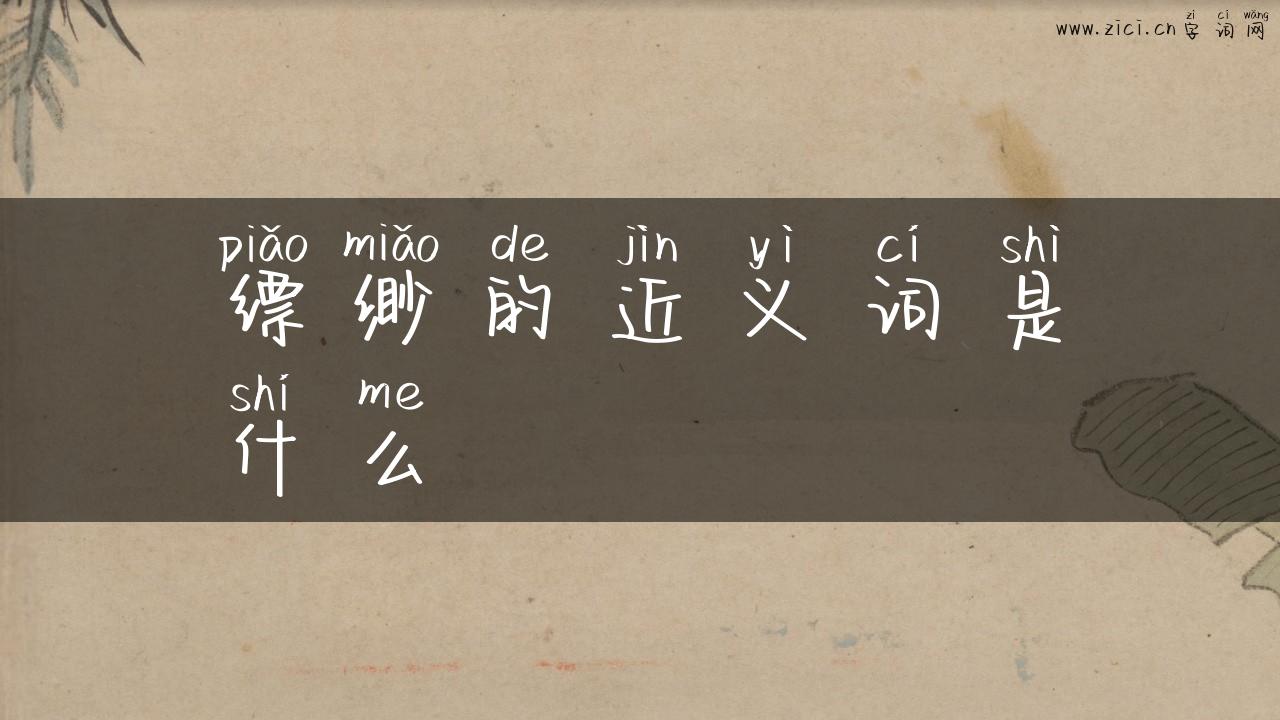 zì cí wǎng
www.zici.cn 字词网
piǎo miǎo de jìn yì cí shì
缥缈的近义词是
shí me
什么